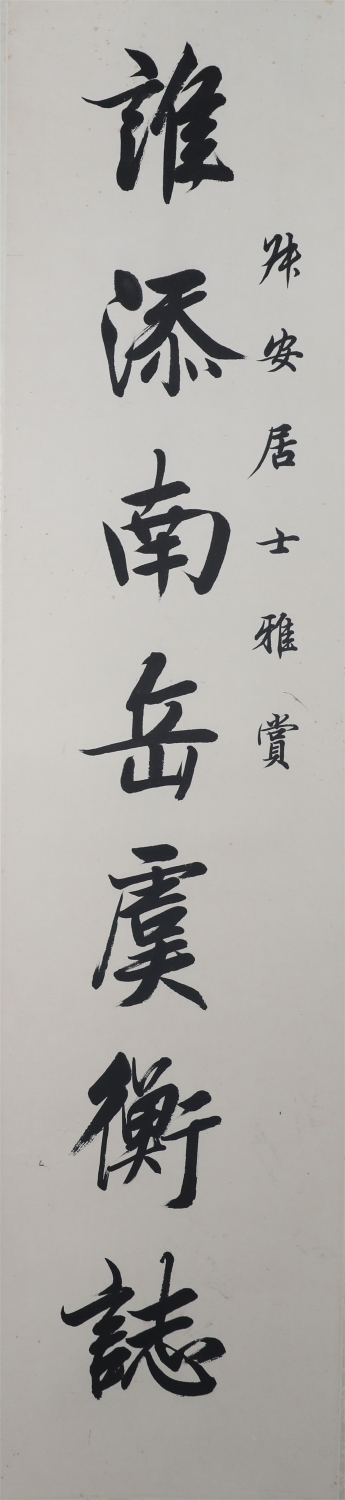 安居士雅賞
誰添南岳虞衡誌